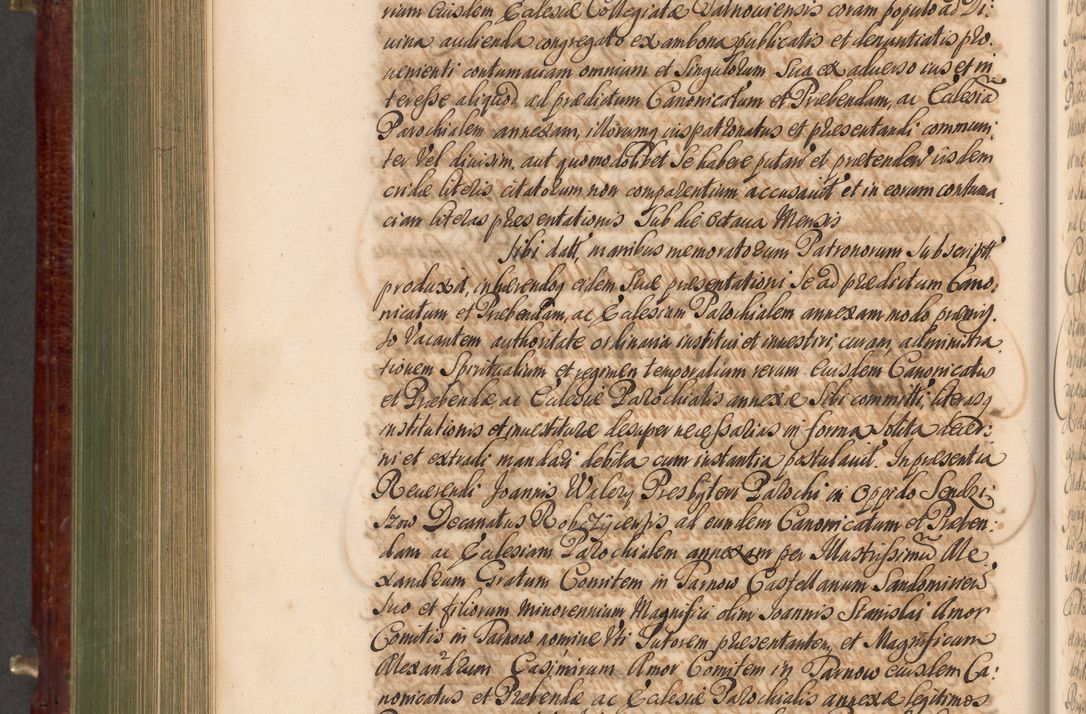 rium Eiusdem Ecclesiæ Collegiatæ Tarnouiensis coram populo ad Di:
uina audienda congregato ex ambona publicatis et denuntiatis pro:
uenienti contumaciam omnium et Singulorum Sua ex aduerso ius et in
teresse aliquod ad prædictum Canonicatum et Præbendam, ac Ecclesiã
Parochialem annexam, illorumq iuspatronatus et præsentandi communi:
ter Vel diuisim, aut quomodolibet Se habere putan et prætenden iisdem
cridæ literis citatorum non comparentium accusauit et in eorum contuma
ciam literas præsentationis Sub die Octaua Mensis
Sibi dat, manibus memoratorum Patronorum Subscript
produxit, inhærendoq eidem Suæ præsentationi Se ad prædictum Cano:
nicatum et Præbendam, ac Ecclesiam Parochialem annexam modo præmis:
so Vacantem authoritate ordinaria institui et inuestiri curam, administra
tionem Spiritualium et regimen temporalium rerum Eiusdem Canonicatus
et Præbendæ, ac Ecclesiæ Parochialis annexæ Sibi committi, literasq
institutionis et inuestituræ desuper necessarias in forma Solita decer:
ni et extradi mandari debita cum instantia postulauit. In præsentia
Reuerendi Joannis Walery Presbyteri Parochi in Oppido Sendzi:
szow Decanatus Robczycensis ad eundem Canonicatum et Præben:
dam ac Ecclesiam Parochialem annexam per Illustrissimũ Ale
xandrum Gratum Comitem in Tarnow Castellanum Sandomirien
Suo et filiorum minorennium Magnifici olim Joannis Stanislai Amor
Comitis in Tarnow nomine Vti Tutorem præsentantem, et Magnificum
Alexandrum Casimirum Amor Comitem in Tarnow eiusdem Ca:
nonicatus et Præbendæ ac Ecclesiæ Parochialis annexæ legitimos